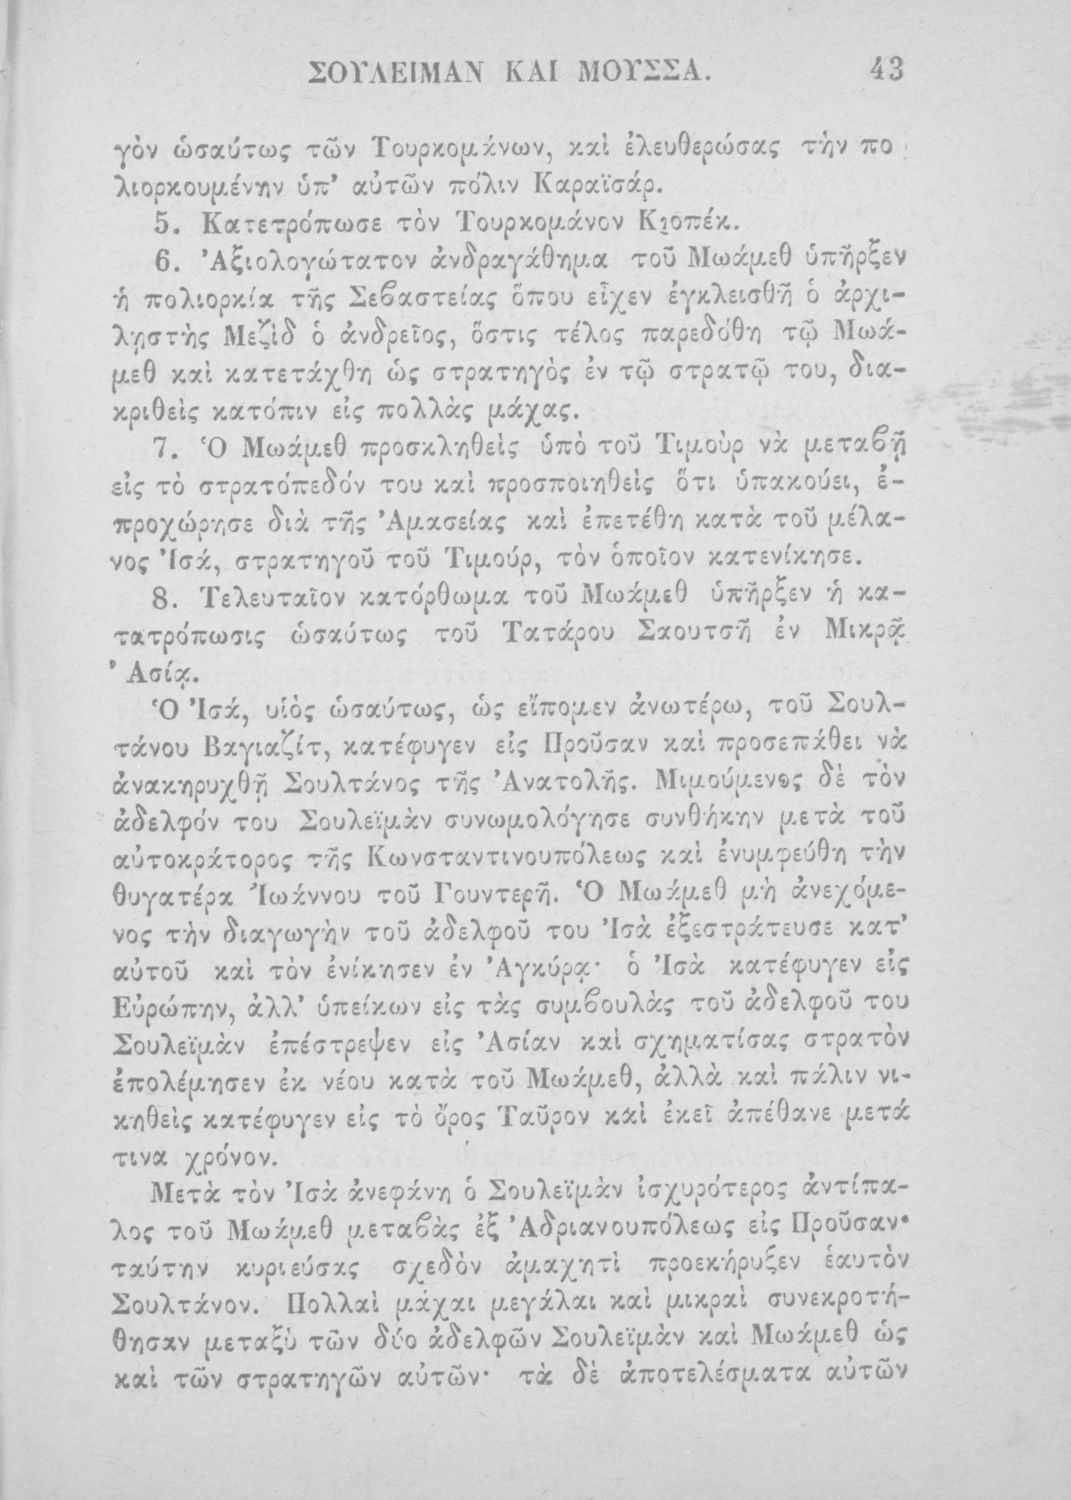 ΣΟΥΛΕΙΜΑΝ ΚΑΙ ΜΟΥΣΣΑ. 43
γὸν ὡσαύτως τῶν Τουρκομάνων, καὶ ἐλευθερώσας τὴν πο
λιορκουμένην ὑπ' αὐτῶν πόλιν Καραϊσάρ.
5. Κατετρόπωσε τὸν Τουρκομάνον Κιοπέκ.
6. Ἀξιολογώτατον ἀνδραγάθημα τοῦ Μωάμεθ ὑπῆρξεν
ἡ πολιορκία τῆς Σεβαστείας ὅπου εἶχεν ἐγκλεισθῆ ὁ ἀρχι-
λῃστὴς Μεζὶδ ὁ ἀνδρεῖος, ὅστις τέλος παρεδόθη τῷ Μωά-
μεθ καὶ κατετάχθη ὡς στρατηγὸς ἐν τῷ στρατῷ του, δια-
κριθεὶς κατόπιν εἰς πολλὰς μάχας.
7. Ὁ Μωάμεθ προσκληθεὶς ὑπὸ τοῦ Τιμοὺρ νὰ μεταβῇ
εἰς τὸ στρατόπεδόν του καὶ προσποιηθεὶς ὅτι ὑπακούει, ἐ-
προχώρησε διὰ τῆς Ἀμασείας καὶ ἐπετέθη κατὰ τοῦ μέλα-
νος Ἰσά, στρατηγοῦ τοῦ Τιμούρ, τὸν ὁποῖον κατενίκησε.
8. Τελευταῖον κατόρθωμα τοῦ Μωάμεθ ὑπῆρξεν ἡ κα-
τατρόπωσις ὡσαύτως τοῦ Τατάρου Σαουτσῆ ἐν Μικρᾷ
Ἀσίᾳ.
Ὁ Ἰσά, υἱὸς ὡσαύτως, ὡς εἴπομεν ἀνωτέρω, τοῦ Σουλ-
τάνου Βαγιαζίτ, κατέφυγεν εἰς Προῦσαν καὶ προσεπάθει νὰ
ἀνακηρυχθῇ Σουλτάνος τῆς Ἀνατολῆς. Μιμούμενος δὲ τὸν
ἀδελφόν του Σουλεϊμὰν συνωμολόγησε συνθήκην μετὰ τοῦ
αὐτοκράτορος τῆς Κωνσταντινουπόλεως καὶ ἐνυμφεύθη τὴν
θυγατέρα Ἰωάννου τοῦ Γουντερῆ. Ὁ Μωάμεθ μὴ ἀνεχόμε-
νος τὴν διαγωγὴν τοῦ ἀδελφοῦ του Ἰσὰ ἐξεστράτευσε κατ'
αὐτοῦ καὶ τὸν ἐνίκησεν ἐν Ἀγκύρᾳ· ὁ Ἰσὰ κατέφυγεν εἰς
Εὐρώπην, ἀλλ' ὑπείκων εἰς τὰς συμβουλὰς τοῦ ἀδελφοῦ του
Σουλεϊμὰν ἐπέστρεψεν εἰς Ἀσίαν καὶ σχηματίσας στρατὸν
ἐπολέμησεν ἐκ νέου κατὰ τοῦ Μωάμεθ, ἀλλὰ καὶ πάλιν νι-
κηθεὶς κατέφυγεν εἰς τὸ ὄρος Ταῦρον καὶ ἐκεῖ ἀπέθανε μετά
τινα χρόνον.
Μετὰ τὸν Ἰσὰ ἀνεφάνη ὁ Σουλεϊμὰν ἰσχυρότερος ἀντίπα-
λος τοῦ Μωάμεθ μεταβὰς ἐξ Ἀδριανουπόλεως εἰς Προῦσαν·
ταύτην κυριεύσας σχεδὸν ἀμαχητὶ προεκήρυξεν ἑαυτὸν
Σουλτάνον. Πολλαὶ μάχαι μεγάλαι καὶ μικραὶ συνεκροτή-
θησαν μεταξὺ τῶν δύο ἀδελφῶν Σουλεϊμὰν καὶ Μωάμεθ ὡς
καὶ τῶν στρατηγῶν αὐτῶν· τὰ δὲ ἀποτελέσματα αὐτῶν